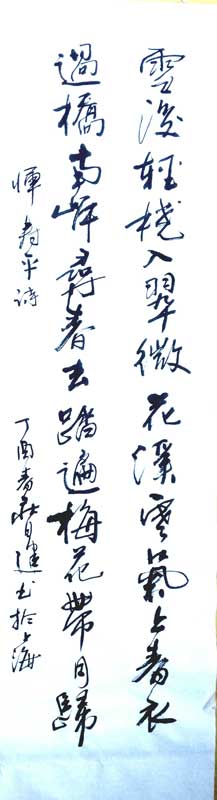 雪後輕橈入翠微花溪寒氣上春衣
過橋南岸尋春去踏遍梅花帶月歸
惲壽平詩
丁酉春 建书於上海